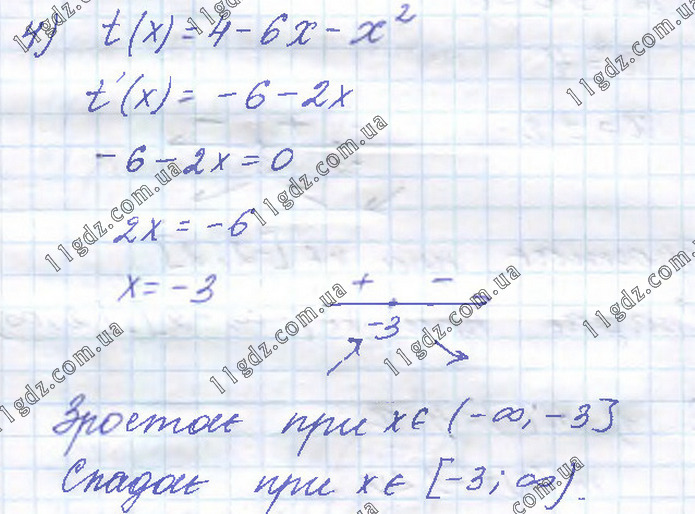 4) t(x) = 4 - 6x - x²
t'(x) = -6 - 2x
-6 - 2x = 0
2x = -6
x = -3
+ -
-3
Зростає при x ∈ (-∞; -3]
Спадає при x ∈ [-3; ∞).
11gdz.com.ua
11gdz.com.ua
11gdz.com.ua
11gdz.com.ua
11gdz.com.ua
11gdz.com.ua
11gdz.com.ua
11gdz.com.ua